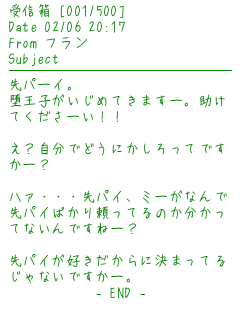 受信箱 [001/500]
Date 02/06 20:17
From フラン
Subject
先パーイ。
堕王子がいじめてきますー。助け
てくださーい！！
え？自分でどうにかしろってです
かー？
ハァ・・・先パイ、ミーがなんで
先パイばかり頼ってるのか分かっ
てないんですねー？
先パイが好きだからに決まってる
じゃないですかー。
- END -